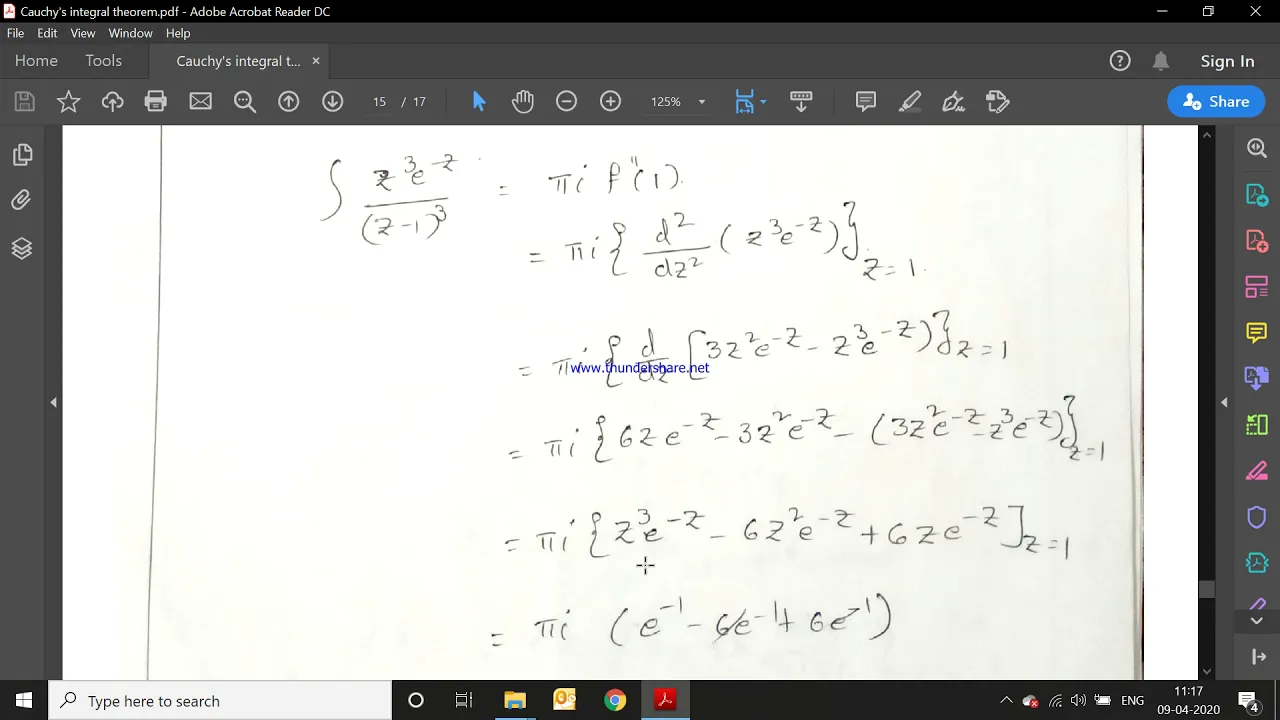 Cauchy's integral theorem.pdf - Adobe Acrobat Reader DC
File Edit View Window Help
Home Tools Cauchy's integral t... × Sign In
15 / 17 125% Share
∫ z³e⁻ᶻ / (z-1)³ = πi f''(1).
= πi { d²/dz² (z³e⁻ᶻ) }z=1.
= πi { d/dz [3z²e⁻ᶻ - z³e⁻ᶻ) }z=1
www.thundershare.net
= πi { 6ze⁻ᶻ - 3z²e⁻ᶻ - (3z²e⁻ᶻ - z³e⁻ᶻ) }z=1
= πi { z³e⁻ᶻ - 6z²e⁻ᶻ + 6ze⁻ᶻ ]z=1
= πi (e⁻¹ - 6e⁻¹ + 6e⁻¹)
Type here to search
ENG
11:17
09-04-2020
4